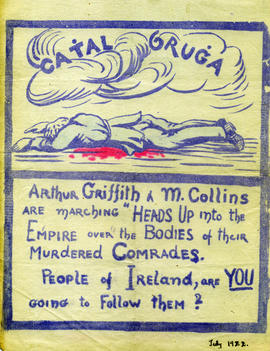 CAṪAL BRUĠA
ARTHUR GRIFFITH & M. COLLINS
ARE MARCHING "HEADS UP INTO THE
EMPIRE OVER THE BODIES OF THEIR
MURDERED COMRADES.
PEOPLE OF IRELAND, ARE YOU
GOING TO FOLLOW THEM?
July 1922.